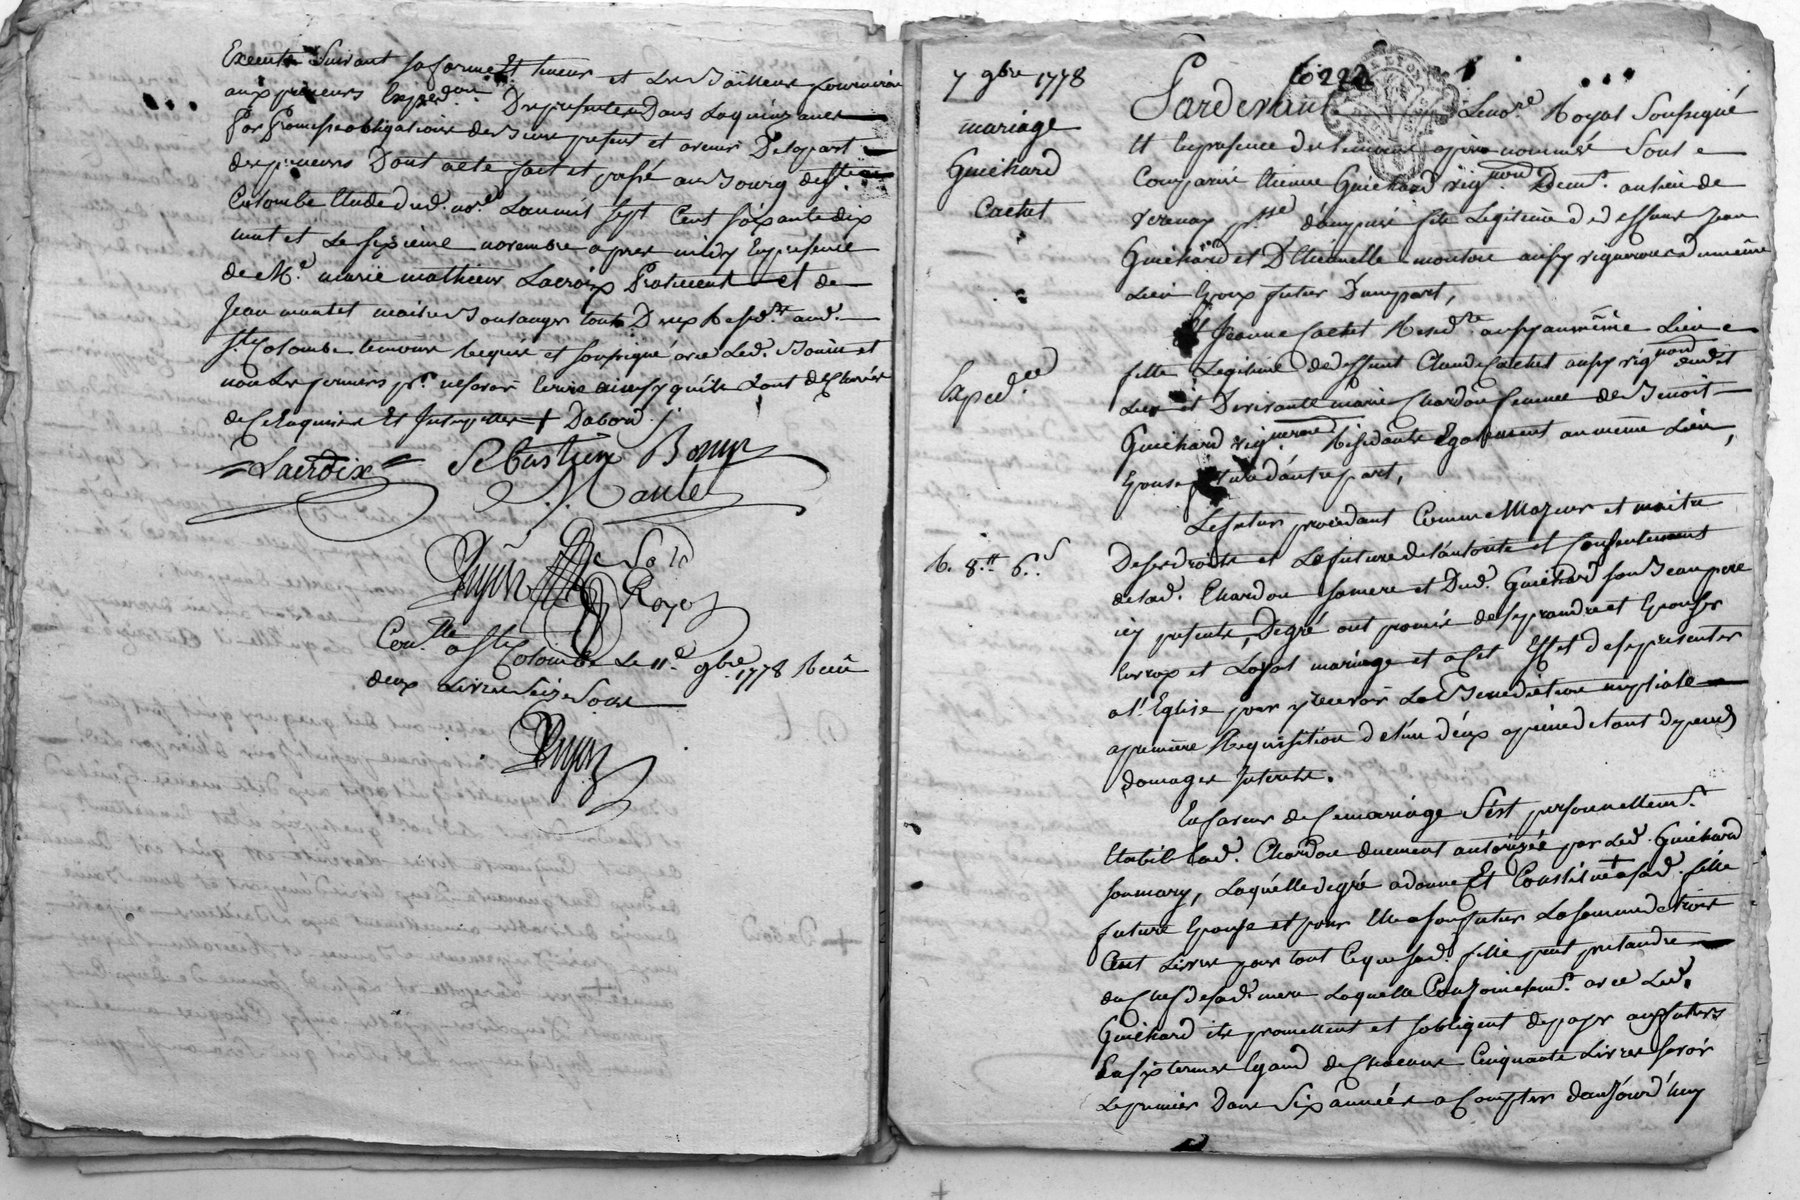 Executer suivant sa forme Et teneur et Les
aux preneurs Expedon Des presentes Dans La quinzaine
Par Promesse obligatoire des biens present et avenir De la part
des preneurs Dont acte fait et passé au Bourg de Ste
Colombe Etude dud. nore Lan mil sept Cent soixante dix
huit et Le sixieme novembre apres midy En presence
de Me marie mathieu Lacroix Praticient et de
Jean montet maitre Boulanger tous Deux Residts aud.
Ste Colombe temoins Requis et soussigné avec Led. Bonin et
non Les preneurs pr ne savoir Ecrire ainsy qu'ils L'ont declarés
de Ce Enquis Et Interpellés + Dabord /
Lacroix Sebastien Bonin
Mantel
Pnₒ
Royal
Conlle a Ste Colombe Le 11e 9bre 1778 Recu
deux Livres Seize Sous
7 9bre 1778
mariage
Guichard
Cachet
Expedée
C. 8.tt 6.s
Pardevant Le nore Royal Soussigné
Et En presence des temoins apres nommés Sont
Comparus Etienne Guichard vigneron Demt au lieu de
Verenay psse d'ampuis fils Legitime de deffunt Jean
Guichard et D'Etiennette montou aussy vignerons du même
Lieu Epoux futur D'une part,
Et Jeanne Cachet Residte aussy au même Lieu
fille Legitime de deffunt Claude Cachet aussy vigneron dudit
Lieu et De vivante marie Chardon femme de Benoit
Guichard vigneron Residante Egalement au même Lieu,
Epouse future d'autre part,
Le futur procedant Comme Majeur et maitre
De ses droits et La future de L'autorité et Consentement
de lad. Chardon sa mere et Dud. Guichard son Beaupere
icy presents, De gré ont promis de se prendre et Epouser
En vray et Loyal mariage et a Cet Effet de se presenter
a L'Eglise pour y recevoir La Benediction nuptiale
a premiere Requisition de L'un d'eux a peine de tout depends
domages Interets.
En faveur de Ce mariage S'est personnellemt
Etablie Lad. Chardon duement autorisée par Led. Guichard
son mary, Laquelle de gré a donné Et Constitué a sad. fille
future Epouse et pour Elle a son futur La somme de trois
Cent Livres pour tout Ce que sad. fille peut pretandre
du Chef de sad. mere Laquelle Conjointemt avec Led.
Guichard ils promettent et s'obligent de payer aux futurs
En six termes Egaux de Chacuns Cinquante Livres savoir
Le premier Dans Six années a Compter d'aujourd'huy